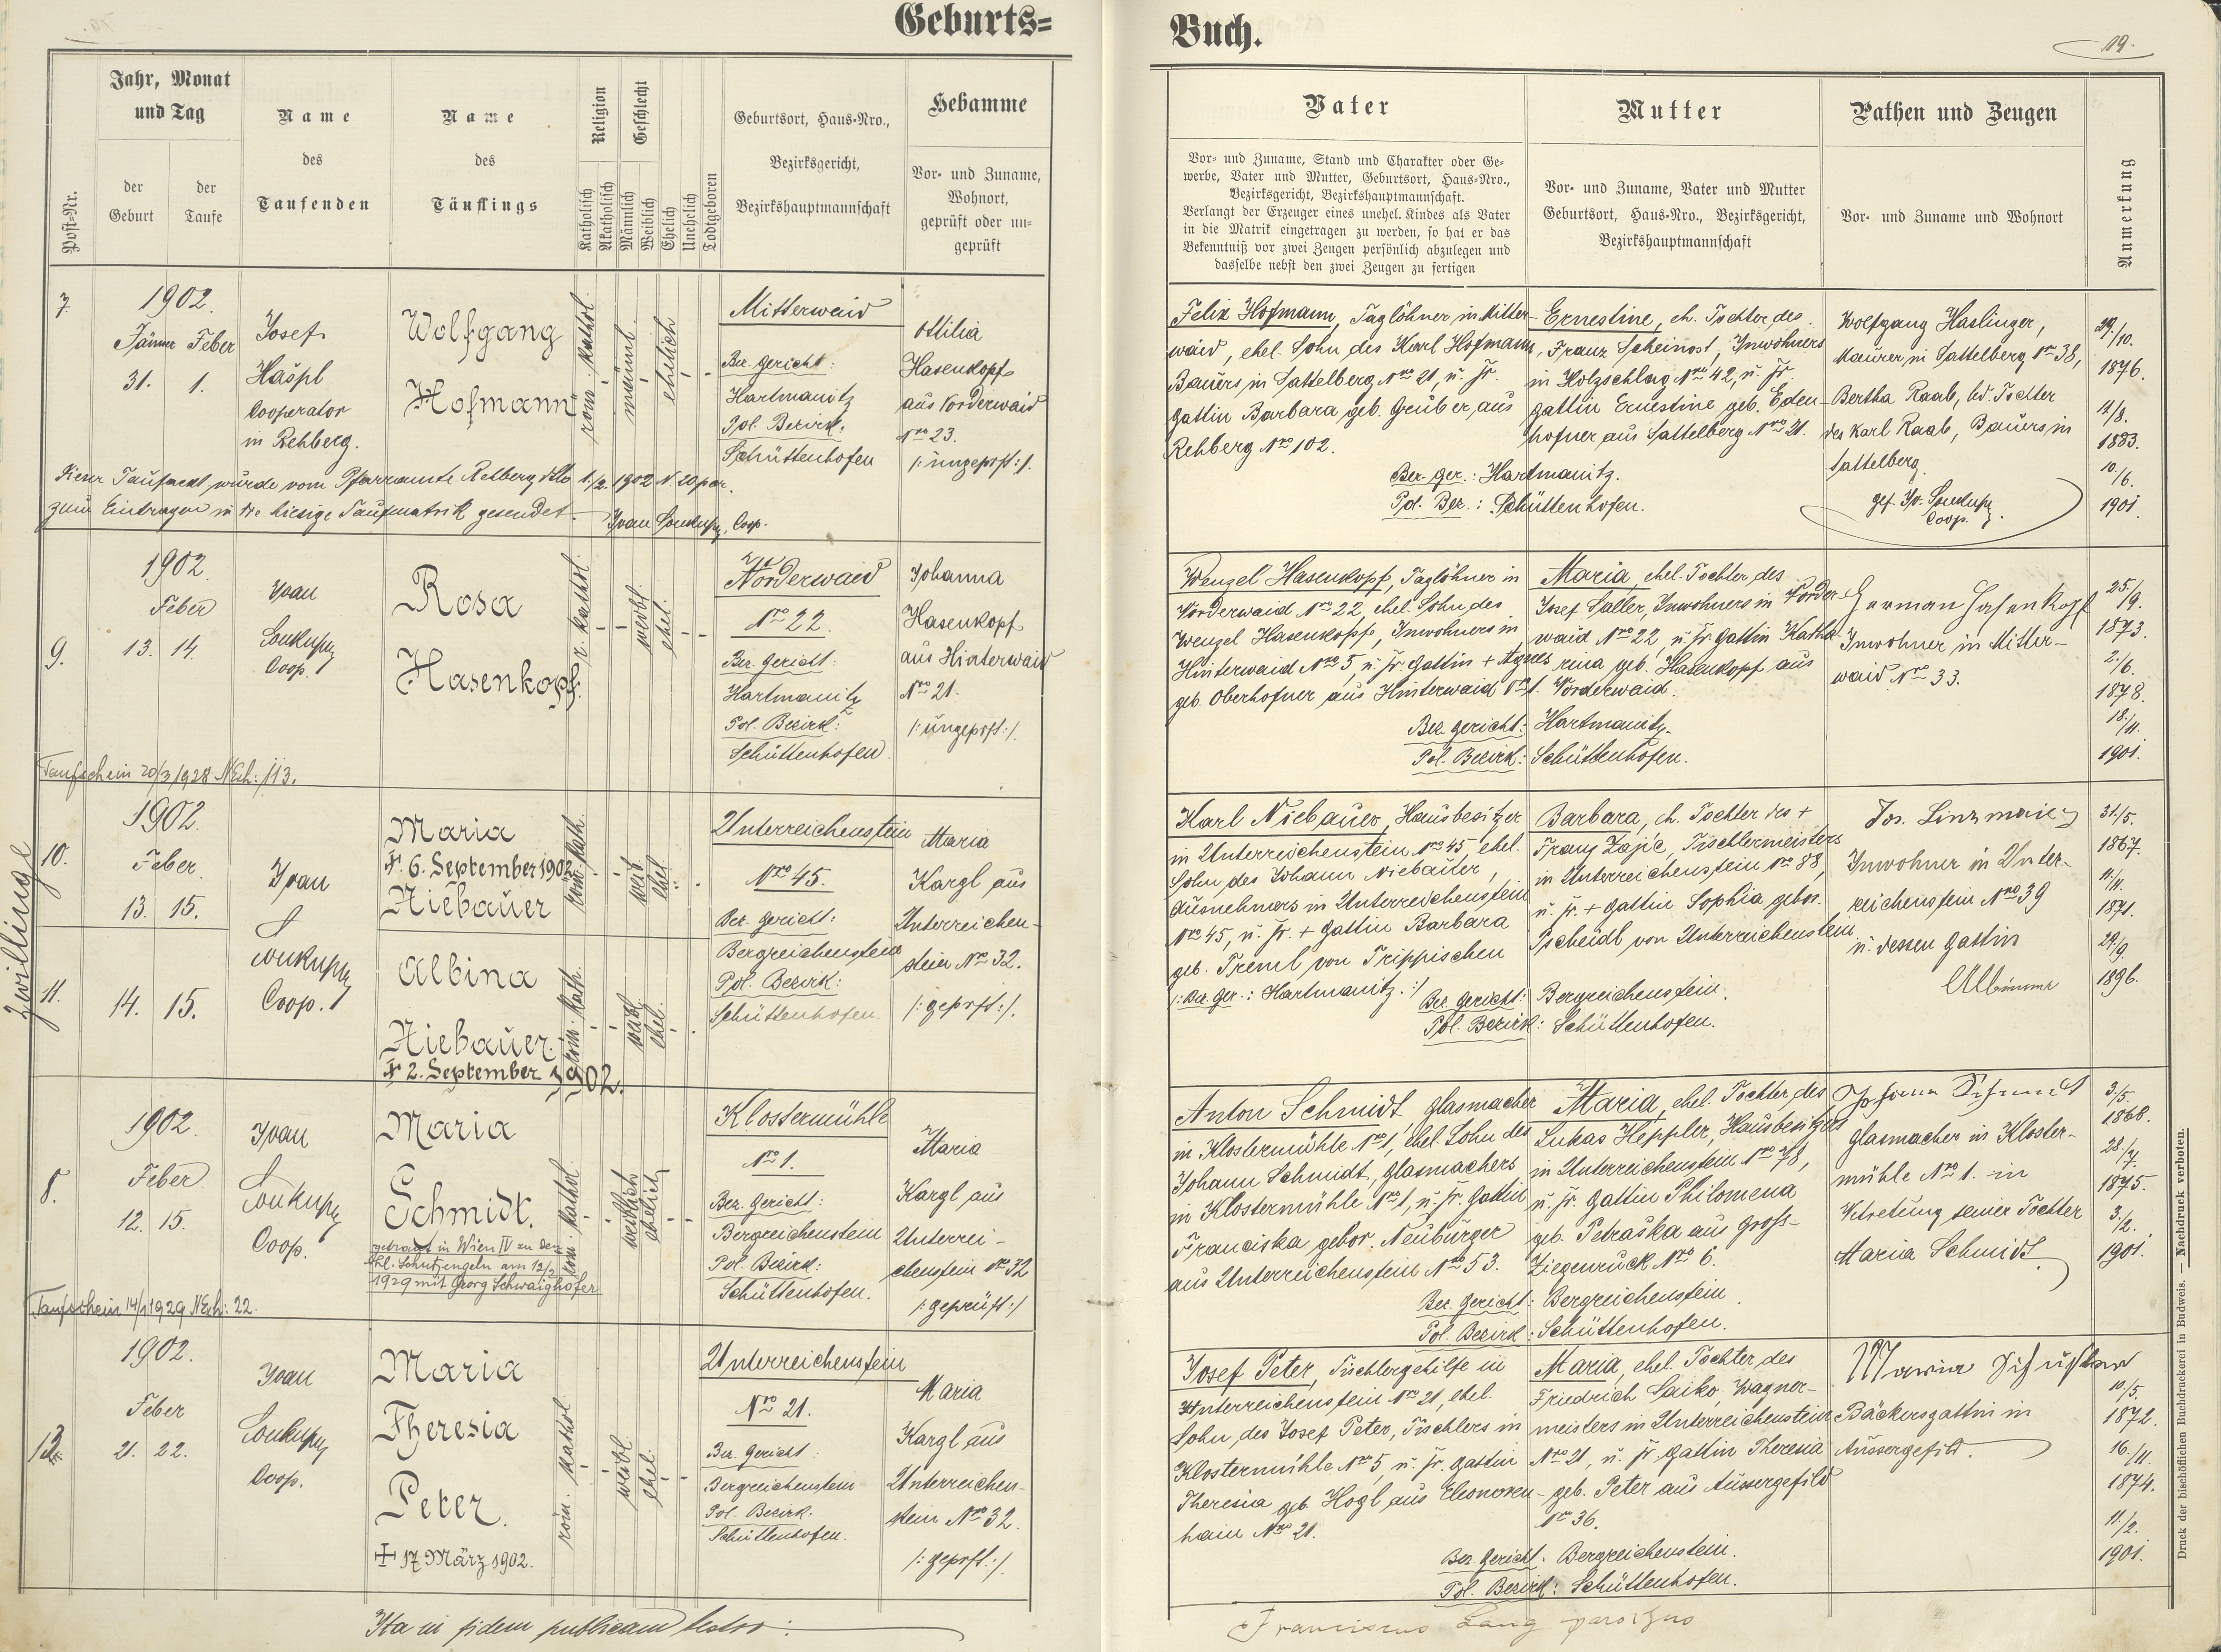 Geburts=
Buch.
19.
Jahr, Monat
und Tag
Name
des
Taufenden
Name
des
Täuflings
Religion
Geschlecht
Geburtsort, Haus=Nro.,
Bezirksgericht,
Bezirkshauptmannschaft
Hebamme
Post=Nr.
der
Geburt
der
Taufe
Katholisch
Akatholisch
Männlich
Weiblich
Ehelich
Unehelich
Todtgeboren
Vor= und Zuname,
Wohnort,
geprüft oder un=
geprüft
Vater
Mutter
Pathen und Zeugen
Anmerkung
Vor= und Zuname, Stand und Charakter oder Ge=
werbe, Vater und Mutter, Geburtsort, Haus=Nro.,
Bezirksgericht, Bezirkshauptmannschaft.
Verlangt der Erzeuger eines unehel. Kindes als Vater
in die Matrik eingetragen zu werden, so hat er das
Bekenntniß vor zwei Zeugen persönlich abzulegen und
dasselbe nebst den zwei Zeugen zu fertigen
Vor= und Zuname, Vater und Mutter
Geburtsort, Haus=Nro., Bezirksgericht,
Bezirkshauptmannschaft
Vor= und Zuname und Wohnort
7.
1902.
Jänner Feber
31. 1.
Josef
Hašpl
Cooperator
in Rehberg.
Wolfgang
Hofmann
röm. kathol.
männl.
ehelich
Mitterwaid
Bez. Gericht:
Hartmanitz
Pol. Bezirk:
Schüttenhofen
Ottilia
Hasenkopf
aus Vorderwaid
Nro 23.
/: ungeprft :/.
Dieser Taufact wurde vom Pfarramte Rehberg dto 1./2. 1902 N. 20 par.
zum Eintragen in die hiesige Taufmatrik gesendet. Ivan Soukup, Coop.
Felix Hofmann, Taglöhner in Mitter-
waid, ehel. Sohn des Karl Hofmann,
Bauers in Sattelberg Nro 21, u. fr.
Gattin Barbara geb. Gruber, aus
Rehberg Nro 102.
Ernestine, eh. Tochter des
Franz Scheinost, Inwohners
in Holzschlag Nro 42, u. fr.
Gattin Ernestine geb. Eden-
hofner aus Sattelberg Nro 21.
Bez. Ger.: Hartmanitz.
Pol. Bez.: Schüttenhofen.
Wolfgang Haslinger,
Maurer in Sattelberg Nr 38,
Bertha Raab, led. Tochter
des Karl Raab, Bauers in
Sattelberg
Coop.
29./10.
1876.
12/8.
1883.
10./6.
1901.
9.
1902.
Feber
13. 14.
Ivan
Soukup
Coop.
Rosa
Hasenkopf.
r. kathol.
weibl.
ehel.
Vorderwaid
Nro 22.
Bez. Gericht:
Hartmanitz
Pol. Bezirk:
Schüttenhofen
Johanna
Hasenkopf
aus Hinterwaid
Nro 21.
/: ungeprft :/.
Taufschein 20/3 1928 NEch: 113.
Wenzel Hasenkopf, Taglöhner in
Vorderwaid Nro 22, ehel. Sohn des
Wenzel Hasenkopf, Inwohners in
Hinterwaid Nro 5, u. fr. Gattin + Agnes
geb. Oberhofner aus Hinterwaid Nro 1.
Maria, ehel. Tochter des
Josef Saller, Inwohners in Vorder-
waid Nro 22, u. fr. Gattin Katha-
rina geb. Hasenkopf aus
Vorderwaid.
Bez. Gericht: Hartmanitz.
Pol. Bezirk: Schüttenhofen.
Herman Hasenkopf
Inwohner in Mitter-
waid Nro 33.
25./9.
1873.
2./6.
1878.
18./11.
1901.
Zwillinge
10.
1902.
Feber
13. 15.
11.
14. 15.
Ivan
Soukup
Coop.
Maria
+ 6. September 1902
Niebauer
röm. kath.
weib.
ehel.
Albina
Niebauer.
+ 2. September 1902.
röm. kath.
weibl.
ehel.
Unterreichenstein
Nro 45.
Bez. Gericht:
Bergreichenstein
Pol. Bezirk:
Schüttenhofen.
Maria
Kargl aus
Unterreichen-
stein Nro 32.
/: geprft :/.
Karl Niebauer, Hausbesitzer
in Unterreichenstein Nro 45 ehel.
Sohn des Johann Niebauer,
Ausnehmers in Unterreichenstein
Nro 45, u. fr. + Gattin Barbara
geb. Preml von Trippischen
/: Bez. Ger.: Hartmanitz. :/
Barbara, eh. Tochter des +
Franz Zajíc, Tischlermeisters
in Unterreichenstein Nro 88,
u. fr. + Gattin Sophia gebor.
Pscheidl von Unterreichenstein
Bez. Gericht: Bergreichenstein.
Pol. Bezirk: Schüttenhofen.
Jos. Linzmaier
Inwohner in Unter-
reichenstein Nro 39
u. dessen Gattin
31./5.
1867.
11./11.
1871.
29./9.
1896.
8.
1902.
Feber
12. 15.
Ivan
Soukup
Coop.
Maria
Schmidt.
getraut in Wien IV zu den
hl. Schutzengeln am 12/2
1929 mit Georg Schwaighofer
röm. kathol.
weiblich
ehelich
Klostermühle
Nro 1.
Bez. Gericht:
Bergreichenstein
Pol. Bezirk:
Schüttenhofen.
Maria
Kargl aus
Unterrei-
chenstein Nro 32
/: geprüft :/
Taufschein 14/1 1929 NEch: 22.
Anton Schmidt, Glasmacher
in Klostermühle Nro 1, ehel. Sohn des
Johann Schmidt, Glasmachers
in Klostermühle Nro 1, u. fr. Gattin
Franciska gebor. Neuburger
aus Unterreichenstein Nro 53.
Maria, ehel. Tochter des
Lukas Heppler, Hausbesitzers
in Unterreichenstein Nro 78,
u. fr. Gattin Philomena
geb. Petraška aus Gross-
Ziegenruck Nro 6.
Bez. Gericht: Bergreichenstein
Pol. Bezirk: Schüttenhofen.
Johann Schmidt
Glasmacher in Kloster-
mühle Nro 1. in
Vetretung seiner Tochter
Maria Schmidt
3./5.
1868.
28./7.
1875.
3./2.
1901.
1902.
Feber
21. 22.
Ivan
Soukup
Coop.
Maria
Theresia
Peter.
+ 17 März 1902.
röm. kathol.
weibl.
ehel.
Unterreichenstein
Nro 21.
Bez. Gericht:
Bergreichenstein
Pol. Bezirk.
Schüttenhofen.
Maria
Kargl aus
Unterreichen-
stein Nro 32.
/: geprft :/.
Josef Peter, Tischlergehilfe in
Unterreichenstein Nro 21, ehel.
Sohn des Josef Peter, Tischlers in
Klostermühle Nro 5, u. fr. Gattin
Theresia geb. Hogl aus Eleonoren-
hain Nro 21.
Maria, ehel. Tochter des
Friedrich Saiko, Wagner-
meisters in Unterreichenstein
Nro 21, u. fr. Gattin Theresia
geb. Peter aus Aussergefild
Nro 36.
Bez. Gericht: Bergreichenstein.
Pol. Bezirk: Schüttenhofen.
Maria Schuster
Bäckersgattin in
Aussergefild.
10./5.
1872.
16./11.
1874.
11./2.
1901.
Ita in fidem publicam testor:
Franciscus Lang parochus
Druck der bischöflichen Buchdruckerei in Budweis. — Nachdruck verboten.